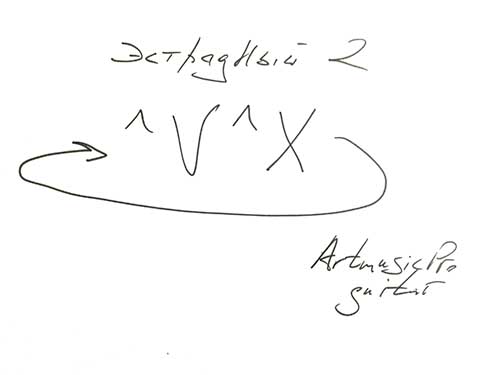 Эстрадный 2
^ V ^ X
ArtmusicPro
guitar